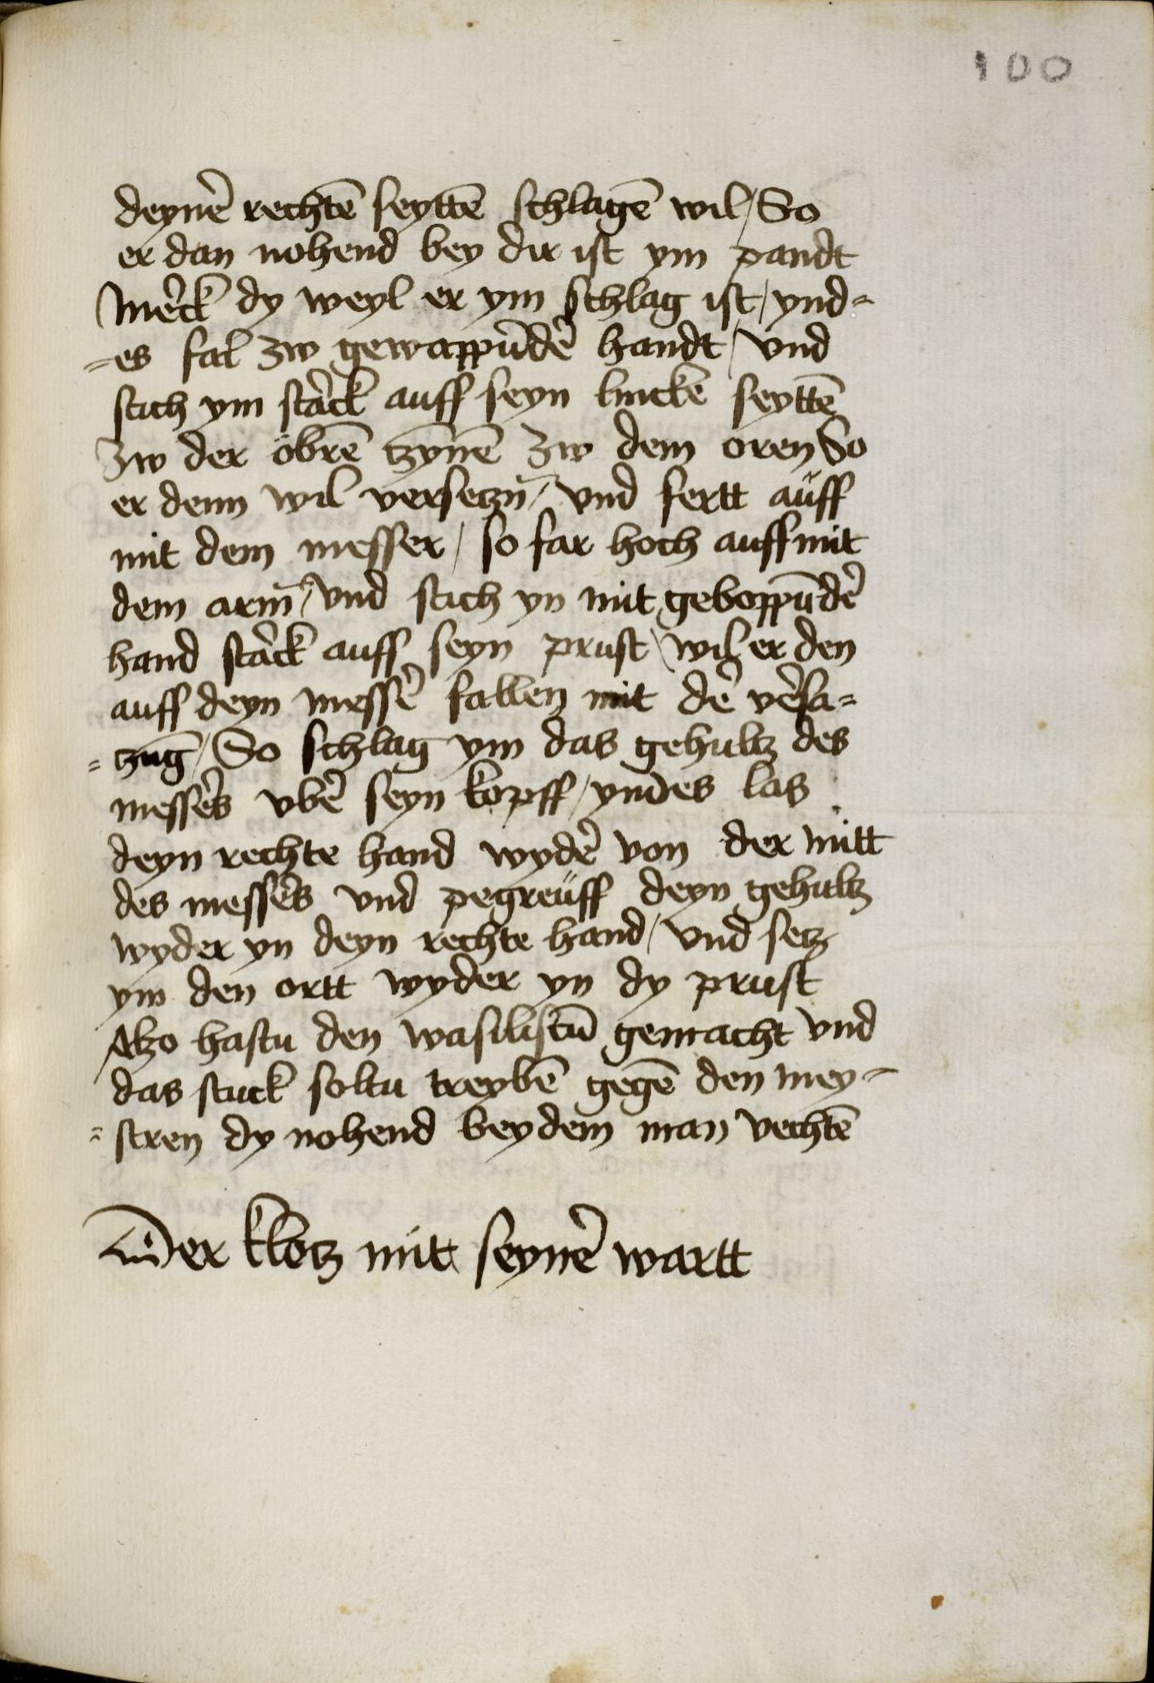 100
deynẽ rechtẽ seyttẽ schlagẽ wil / So
er dan nohend bey dir ist ym pandt
Mẽck dy weyl er ym schlag ist / ynd=
=es fal zw gewappũdẽ handt / vnd
stich ym stãck auff seyn lincke seyttẽ
zw der öbrẽ tzynnẽ zw dem oren So
er denn wil versetzñ / vnd fertt auff
mit dem messer / so far hoch auff mit
dem arm̃ / vnd stich yn mit geboppũdẽ
hand stãck auff seyn prust / wil er den
auff deyn messẽ fallen mit dẽ vẽsa=
=tzũg / So schlag ym das gehultz des
messẽs vbẽ seyn kopff / yndes las
deyn rechte hand wydẽ von der mitt
des messẽs vnd pegreüff deyn gehultz
wyder yn deyn rechte hand / vnd setz
ym den ortt wyder yn dy prust
Alzo hastu den wasilistũ gemacht vnd
das stuck soltu treybẽ gegẽ den mey=
=stren dy nohend bey dem man vechtẽ
Der klotz mit seynẽ wartt